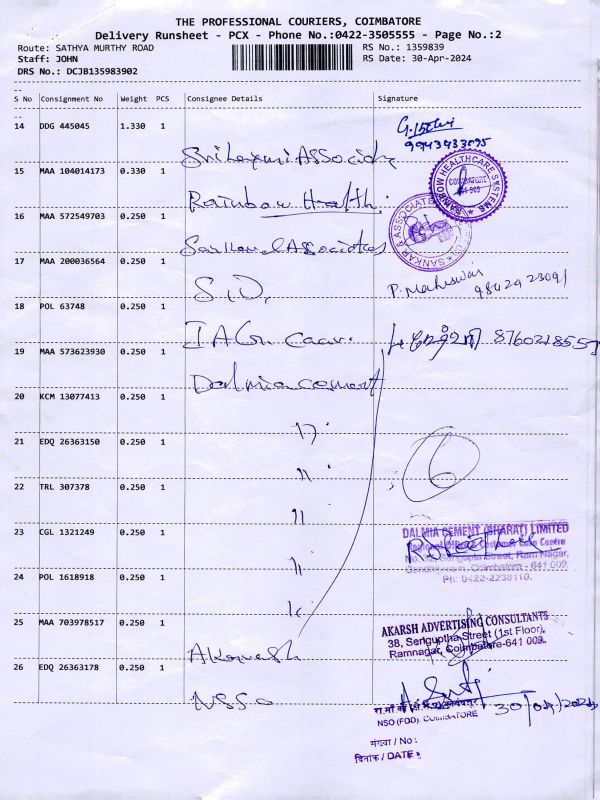 THE PROFESSIONAL COURIERS, COIMBATORE
Delivery Runsheet - PCX - Phone No.:0422-3505555 - Page No.:2
Route: SATHYA MURTHY ROAD
RS No.: 1359839
Staff: JOHN
RS Date: 30-Apr-2024
DRS No.: DCJB135983902
S No Consignment No Weight PCS Consignee Details Signature
14 DDG 445045 1.330 1
9943933095
Sri Laxmi Associate
15 MAA 104014173 0.330 1
RAINBOW HEALTHCARE SYSTEMS
COIMBATORE
Rainbow Health.
16 MAA 572549703 0.250 1
SANKAR & ASSOCIATES
Associates
17 MAA 200036564 0.250 1
P. Maheswari
S.D.
18 POL 63748 0.250 1
8760218559
19 MAA 573623930 0.250 1
Dalmia cement
20 KCM 13077413 0.250 1
21 EDQ 26363150 0.250 1
6
22 TRL 307378 0.250 1
23 CGL 1321249 0.250 1
DALMIA CEMENT (BHARAT) LIMITED
Centre
Street, Ram Nagar,
Coimbatore - 641 009.
Ph: 0422-2238110.
24 POL 1618918 0.250 1
25 MAA 703978517 0.250 1
AKARSH ADVERTISING CONSULTANTS
38, Senguptha Street (1st Floor),
Ramnagar, Coimbatore-641 009.
Akarsh
26 EDQ 26363178 0.250 1
NSSO
30/04/2024
NSO (FOD), COIMBATORE
संख्या / No :
दिनांक / DATE :